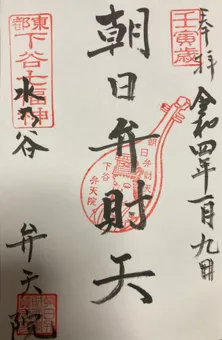 壬寅歳
奉拝
令和四年一月九日
朝日弁財天
朝日弁財天
下谷
弁天院
東都
下谷七福神
水の谷
弁天院